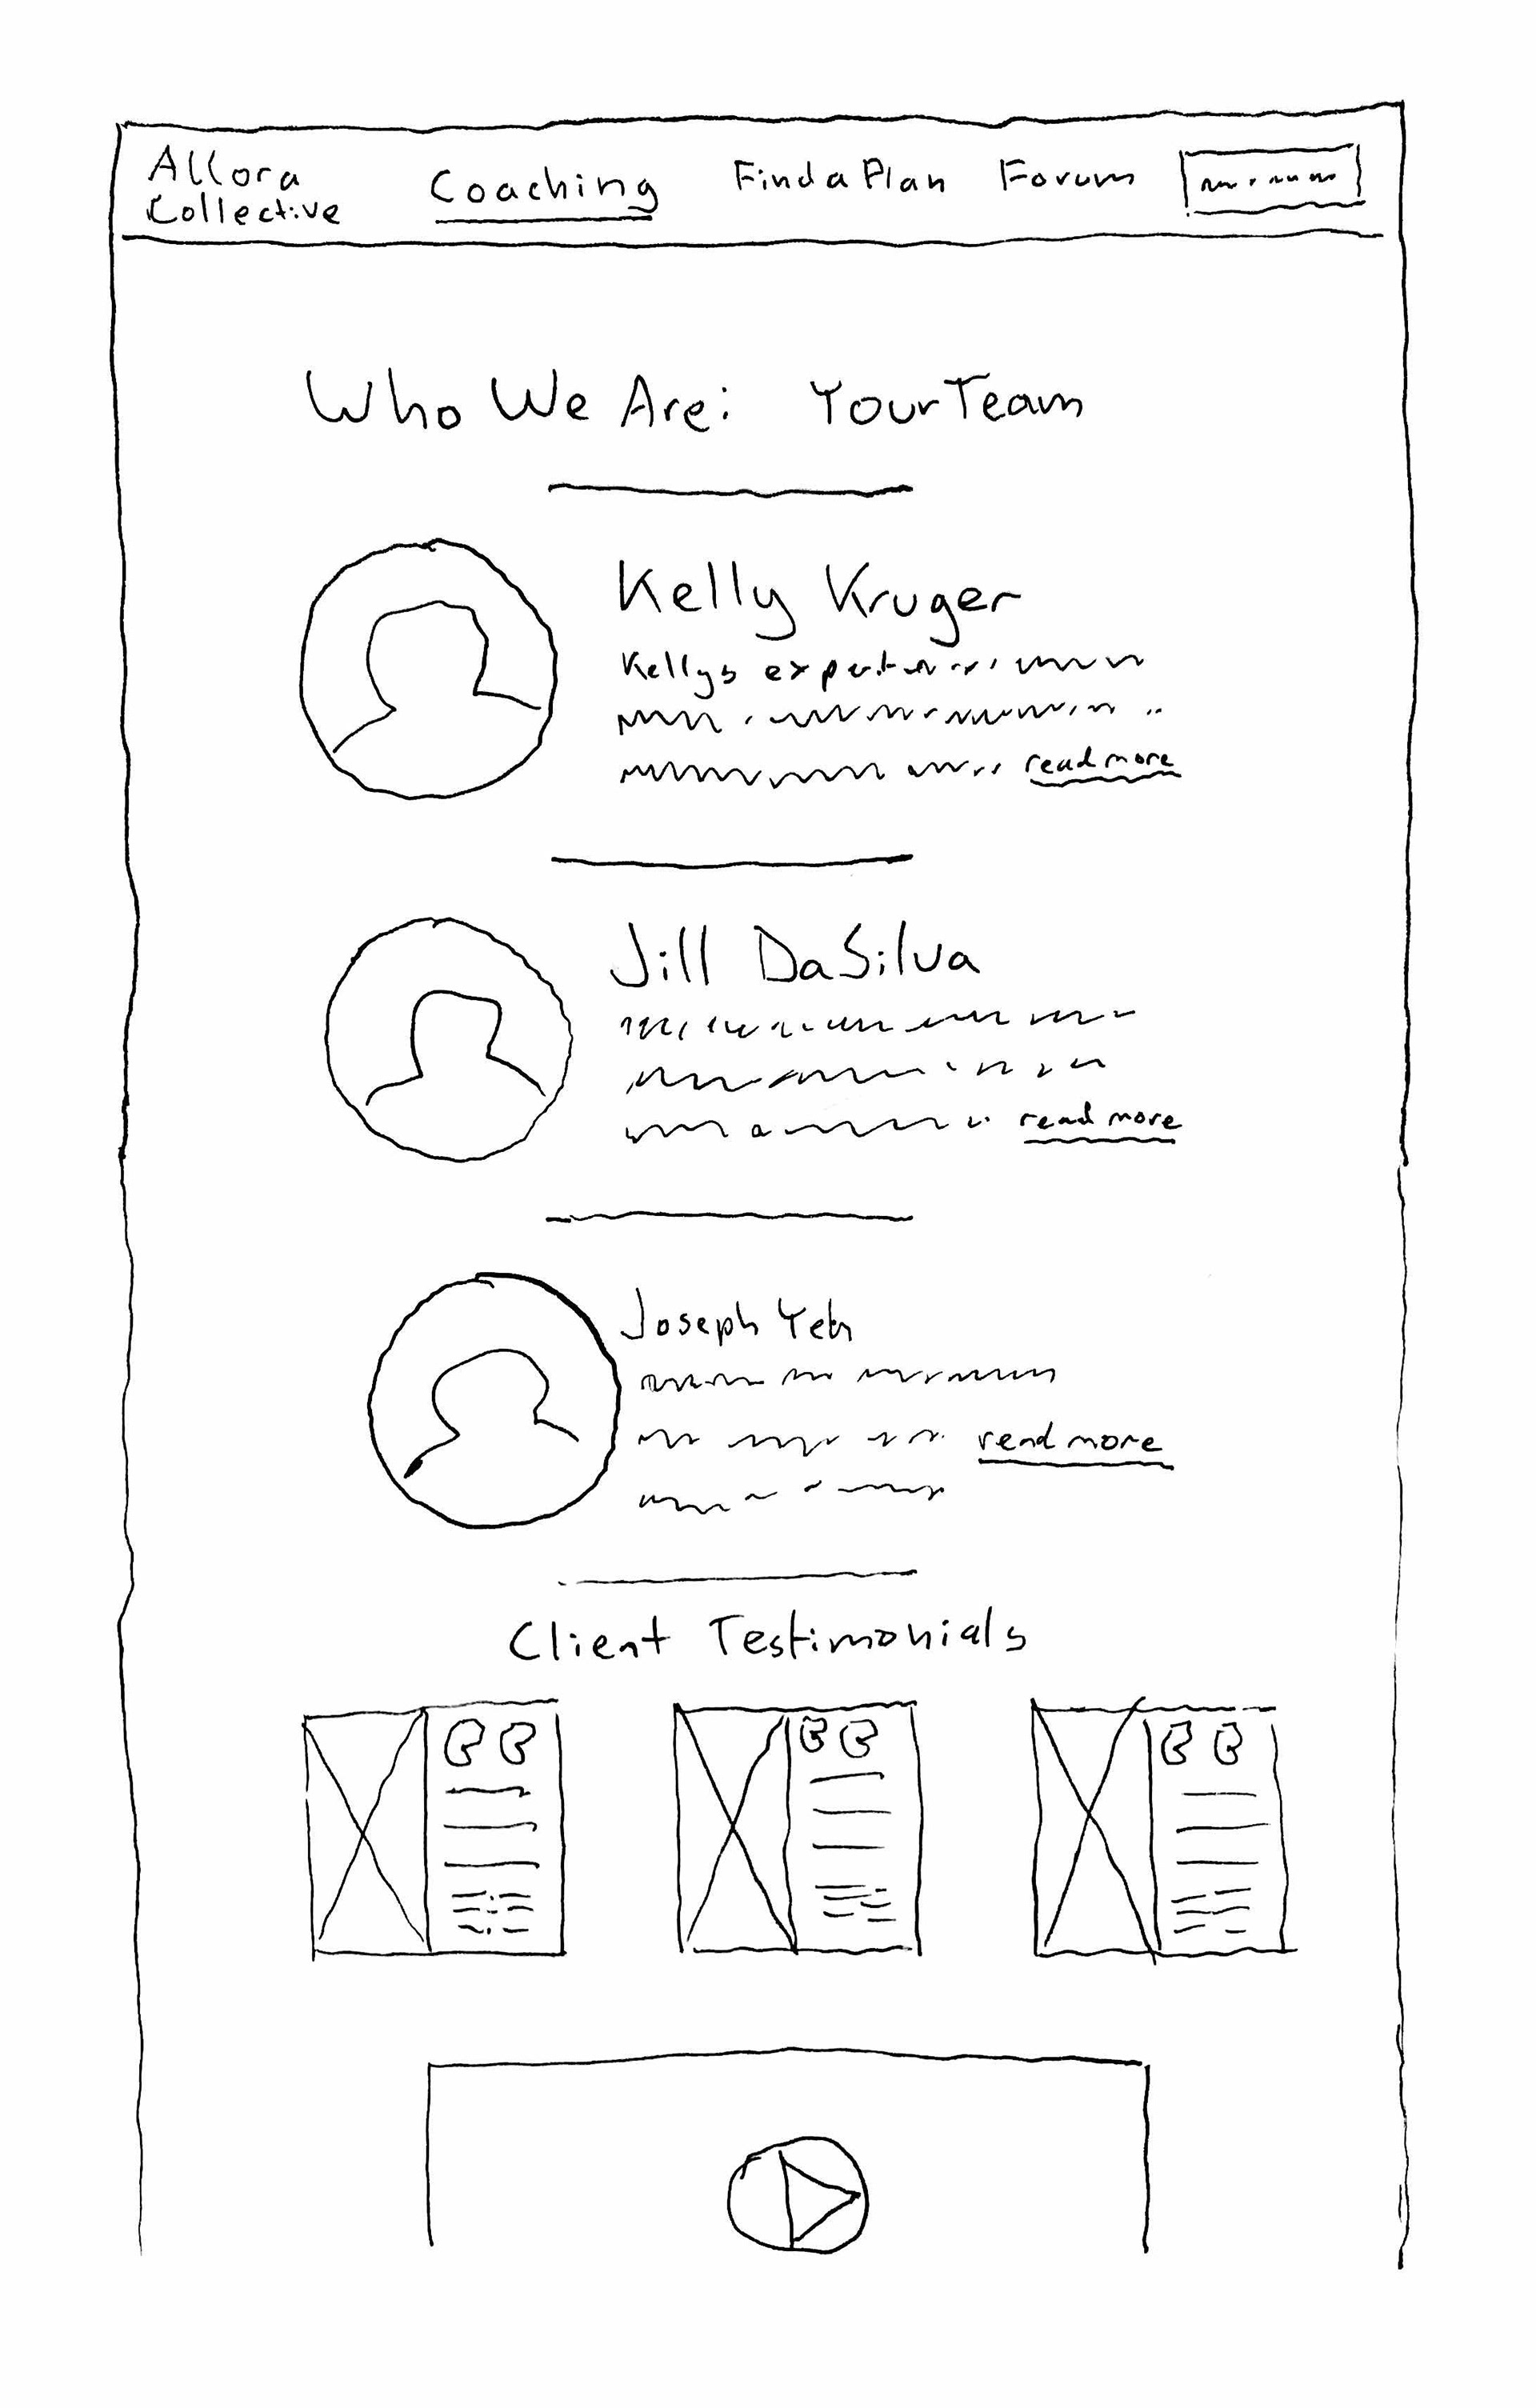 Allora
Collective
Coaching
Find a Plan
Forum
Who We Are: Your Team
Kelly Kruger
Kellys
read more
Jill DaSilva
read more
Joseph Yeh
read more
Client Testimonials